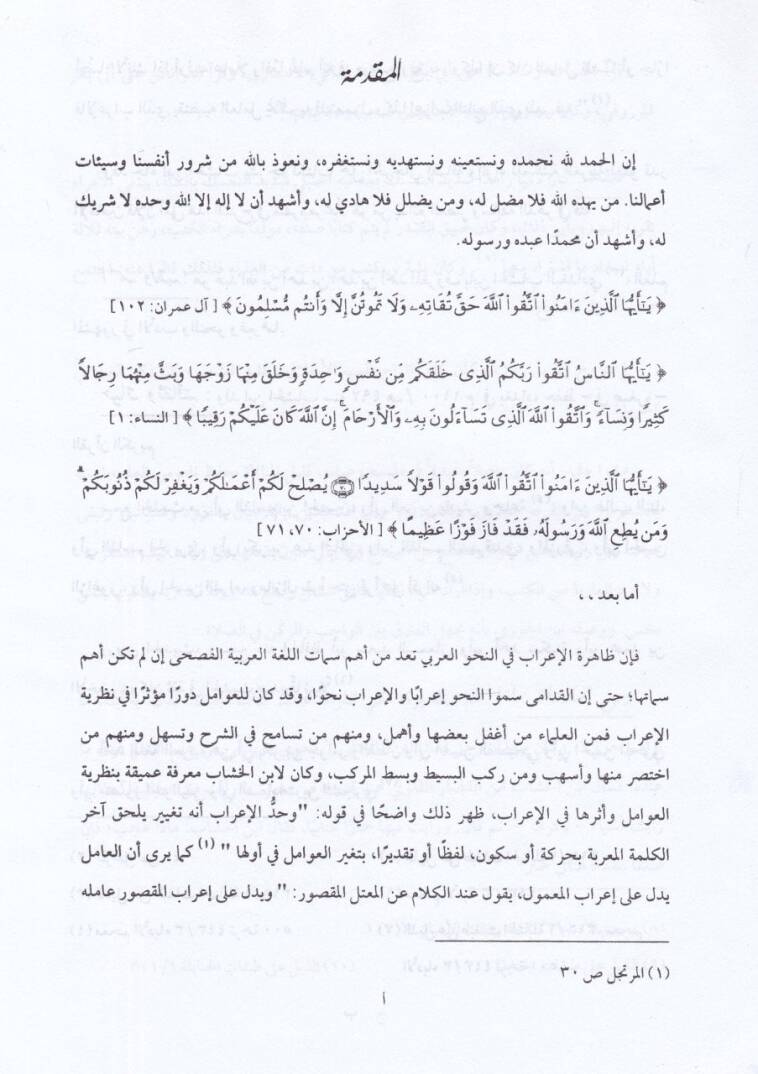 المقدمة
إن الحمد لله نحمده ونستعينه ونستهديه ونستغفره، ونعوذ بالله من شرور أنفسنا وسيئات
أعمالنا. من يهده الله فلا مضل له، ومن يضلل فلا هادي له، وأشهد أن لا إله إلا الله وحده لا شريك
له، وأشهد أن محمدًا عبده ورسوله.
﴿ يَٰٓأَيُّهَا ٱلَّذِينَ ءَامَنُوا۟ ٱتَّقُوا۟ ٱللَّهَ حَقَّ تُقَاتِهِۦ وَلَا تَمُوتُنَّ إِلَّا وَأَنتُم مُّسْلِمُونَ ﴾ [ آل عمران: ١٠٢]
﴿ يَٰٓأَيُّهَا ٱلنَّاسُ ٱتَّقُوا۟ رَبَّكُمُ ٱلَّذِى خَلَقَكُم مِّن نَّفْسٍ وَٰحِدَةٍ وَخَلَقَ مِنْهَا زَوْجَهَا وَبَثَّ مِنْهُمَا رِجَالاً
كَثِيرًا وَنِسَآءً ۚ وَٱتَّقُوا۟ ٱللَّهَ ٱلَّذِى تَسَآءَلُونَ بِهِۦ وَٱلْأَرْحَامَ ۚ إِنَّ ٱللَّهَ كَانَ عَلَيْكُمْ رَقِيبًا ﴾ [ النساء: ١]
﴿ يَٰٓأَيُّهَا ٱلَّذِينَ ءَامَنُوا۟ ٱتَّقُوا۟ ٱللَّهَ وَقُولُوا۟ قَوْلاً سَدِيدًا ۝٧٠ يُصْلِحْ لَكُمْ أَعْمَٰلَكُمْ وَيَغْفِرْ لَكُمْ ذُنُوبَكُمْ ۗ
وَمَن يُطِعِ ٱللَّهَ وَرَسُولَهُۥ فَقَدْ فَازَ فَوْزًا عَظِيمًا ﴾ [ الأحزاب: ٧٠، ٧١ ]
أما بعد ، ،
فإن ظاهرة الإعراب في النحو العربي تعد من أهم سمات اللغة العربية الفصحى إن لم تكن أهم
سماتها؛ حتى إن القدامى سموا النحو إعرابًا والإعراب نحوًا، وقد كان للعوامل دورًا مؤثرًا في نظرية
الإعراب فمن العلماء من أغفل بعضها وأهمل، ومنهم من تسامح في الشرح وتسهل ومنهم من
اختصر منها وأسهب ومن ركب البسيط وبسط المركب، وكان لابن الخشاب معرفة عميقة بنظرية
العوامل وأثرها في الإعراب، ظهر ذلك واضحًا في قوله: "وحدُّ الإعراب أنه تغيير يلحق آخر
الكلمة المعربة بحركة أو سكون، لفظًا أو تقديرًا، بتغير العوامل في أولها " (١) كما يرى أن العامل
يدل على إعراب المعمول، يقول عند الكلام عن المعتل المقصور: " ويدل على إعراب المقصور عامله
(١) المرتجل ص ٣٠
أ